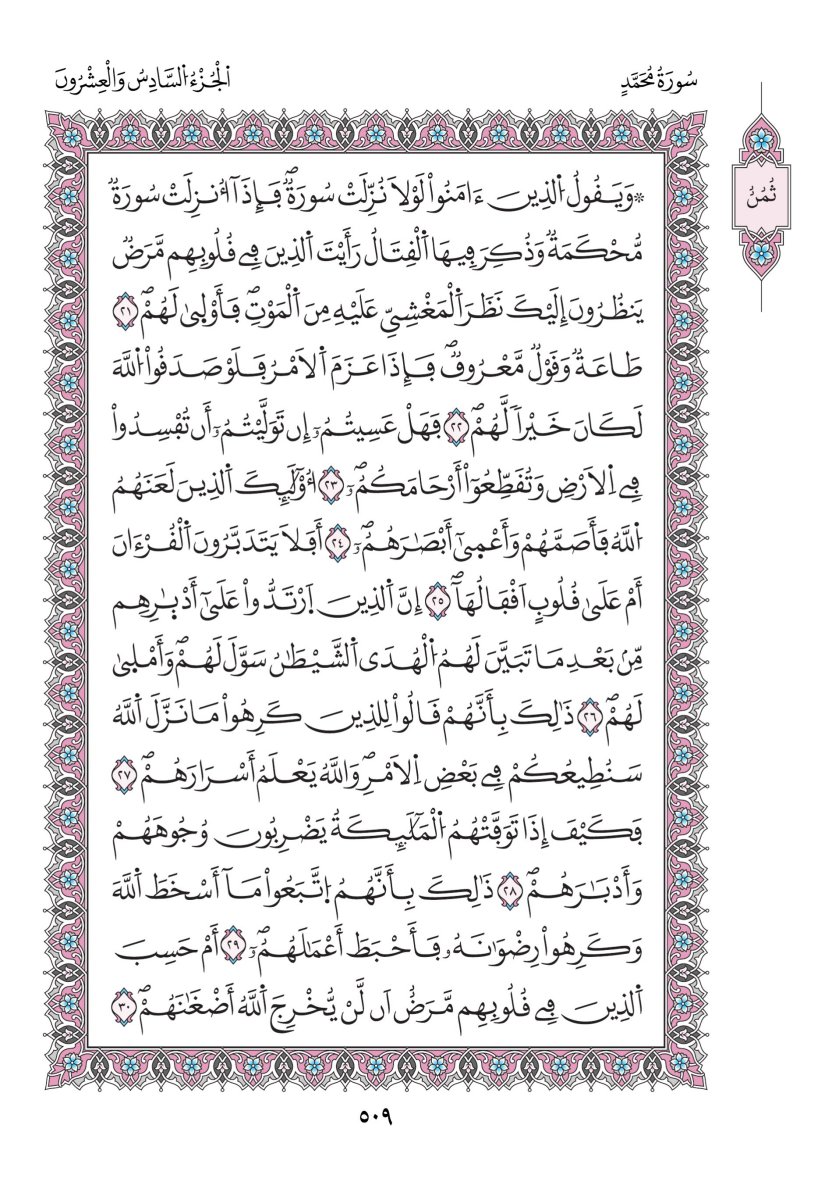 سُورَةُ مُحَمَّدٍ
اَلْجُزْءُ السَّادِسُ وَالْعِشْرُونَ
ثُمُنُ
۞وَيَقُولُ اُلذِينَ ءَامَنُواْ لَوْلَا نُزِّلَتْ سُورَةٞۖ فَإِذَآ أُنزِلَتْ سُورَةٞ
مُّحْكَمَةٞ وَذُكِرَ فِيهَا اَلْقِتَالُ رَأَيْتَ اَلذِينَ فِي قُلُوبِهِم مَّرَضٞ
يَنظُرُونَ إِلَيْكَ نَظَرَ اَلْمَغْشِيِّ عَلَيْهِ مِنَ اَلْمَوْتِۖ فَأَوْلَىٰ لَهُمْۖ ٢١
طَاعَةٞ وَقَوْلٞ مَّعْرُوفٞۖ فَإِذَا عَزَمَ اَلَامْرُ فَلَوْ صَدَقُواْ اُللَّهَ
لَكَانَ خَيْراٗ لَّهُمْۖ ٢٢ فَهَلْ عَسِيتُمُۥٓ إِن تَوَلَّيْتُمُۥٓ أَن تُفْسِدُواْ
فِي اِلَارْضِ وَتُقَطِّعُوٓاْ أَرْحَامَكُمُۥٓۖ ٢٣ أُوْلَٰٓئِكَ اَلذِينَ لَعَنَهُمُ
اُللَّهُ فَأَصَمَّهُمْ وَأَعْمَىٰٓ أَبْصَٰرَهُمُۥٓۖ ٢٤ أَفَلَا يَتَدَبَّرُونَ اَلْقُرْءَانَ
أَمْ عَلَىٰ قُلُوبٍ اَقْفَالُهَآۖ ٢٥ إِنَّ اَلذِينَ اَرْتَدُّواْ عَلَىٰٓ أَدْبٰ۪رِهِم
مِّنۢ بَعْدِ مَا تَبَيَّنَ لَهُمُ اُلْهُدَى اَلشَّيْطَٰنُ سَوَّلَ لَهُمْۖ وَأَمْلَىٰ
لَهُمْۖ ٢٦ ذَٰلِكَ بِأَنَّهُمْ قَالُواْ لِلذِينَ كَرِهُواْ مَا نَزَّلَ اَللَّهُ
سَنُطِيعُكُمْ فِي بَعْضِ اِلَامْرِۖ وَاللَّهُ يَعْلَمُ أَسْرَارَهُمْۖ ٢٧
فَكَيْفَ إِذَا تَوَفَّتْهُمُ اُلْمَلَٰٓئِكَةُ يَضْرِبُونَ وُجُوهَهُمْ
وَأَدْبَٰرَهُمْۖ ٢٨ ذَٰلِكَ بِأَنَّهُمُ اُتَّبَعُواْ مَآ أَسْخَطَ اَللَّهَ
وَكَرِهُواْ رِضْوَٰنَهُۥ فَأَحْبَطَ أَعْمَٰلَهُمُۥٓۖ ٢٩ أَمْ حَسِبَ
اَلذِينَ فِي قُلُوبِهِم مَّرَضٌ اَن لَّنْ يُّخْرِجَ اَللَّهُ أَضْغَٰنَهُمْۖ ٣٠
٥٠٩